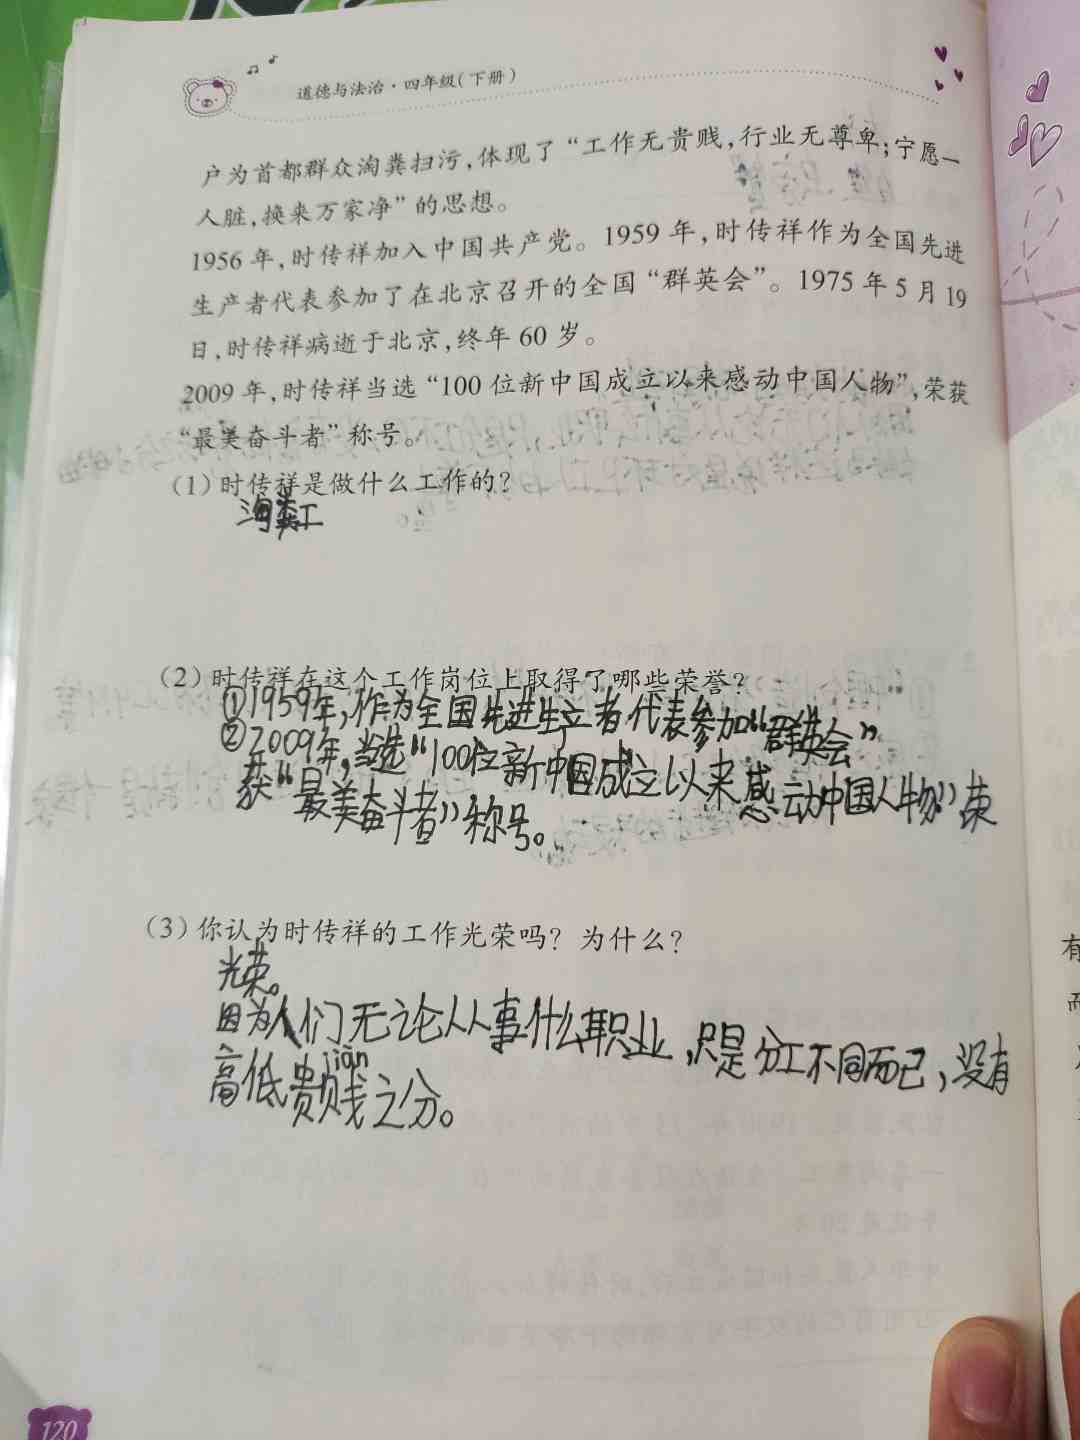 道德与法治·四年级(下册)
户为首都群众淘粪扫污,体现了“工作无贵贱,行业无尊卑;宁愿一
人脏,换来万家净”的思想。
1956年,时传祥加入中国共产党。1959年,时传祥作为全国先进
生产者代表参加了在北京召开的全国“群英会”。1975年5月19
日,时传祥病逝于北京,终年60岁。
2009年,时传祥当选“100位新中国成立以来感动中国人物”,荣获
“最美奋斗者”称号。
(1)时传祥是做什么工作的?
淘粪工
(2)时传祥在这个工作岗位上取得了哪些荣誉?
①1959年,作为全国先进生产者代表参加“群英会”
②2009年,当选“100位新中国成立以来感动中国人物”荣
获“最美奋斗者”称号。
(3)你认为时传祥的工作光荣吗?为什么?
光荣。
因为人们无论从事什么职业,只是分工不同而已,没有
jiàn
高低贵贱之分。
120